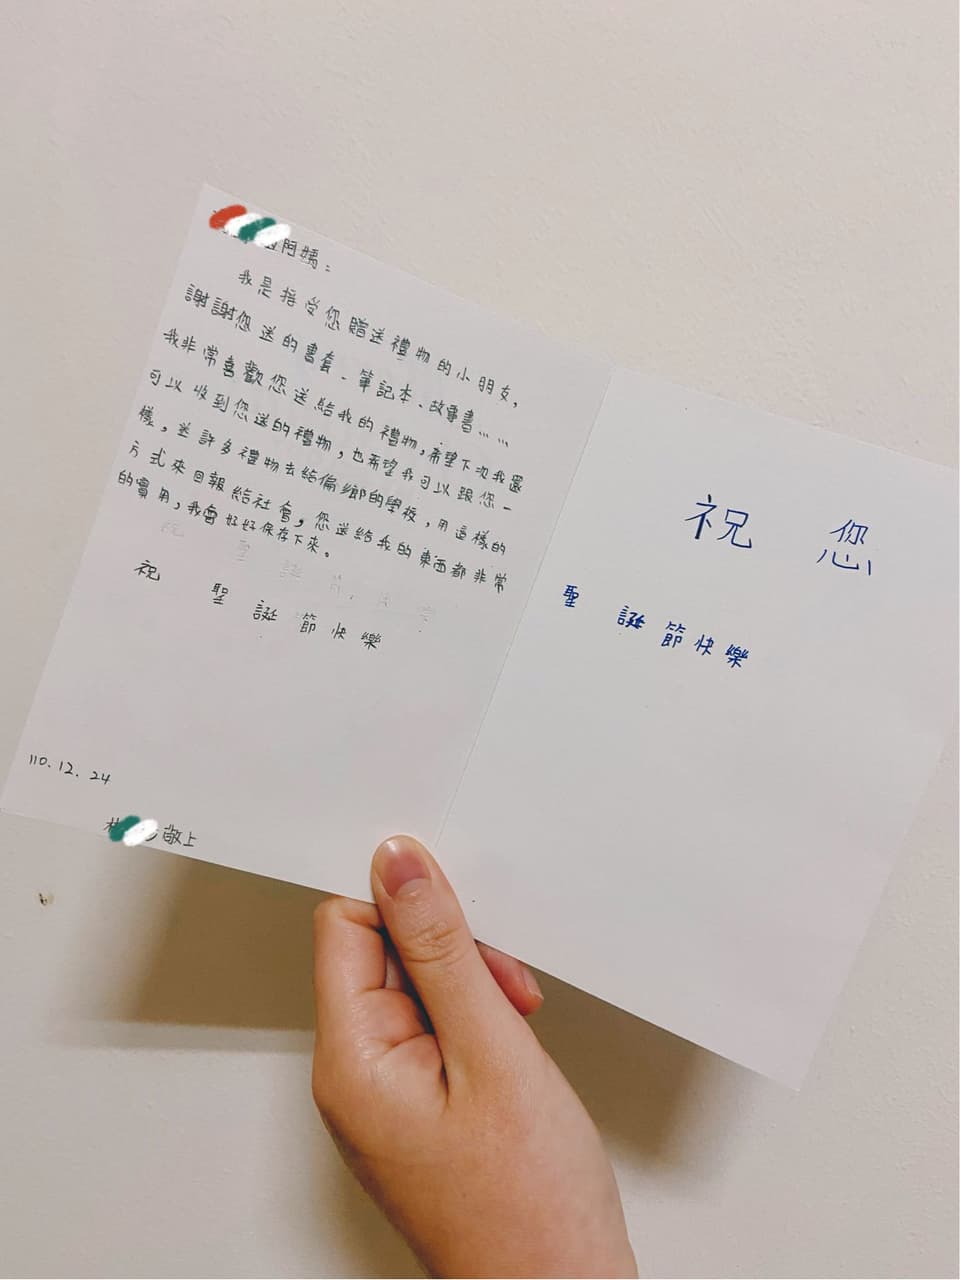 阿姨：
我是接受您贈送禮物的小朋友，
謝謝您送的書套、筆記本、故事書……
我非常喜歡您送給我的禮物，希望下次我還
可以收到您送的禮物，也希望我可以跟您一
樣，送許多禮物去給偏鄉的學校，用這樣的
方式來回報給社會，您送給我的東西都非常
的實用，我會好好保存下來。
祝
聖誕節快樂
110.12.24
敬上
祝 您
聖誕節快樂